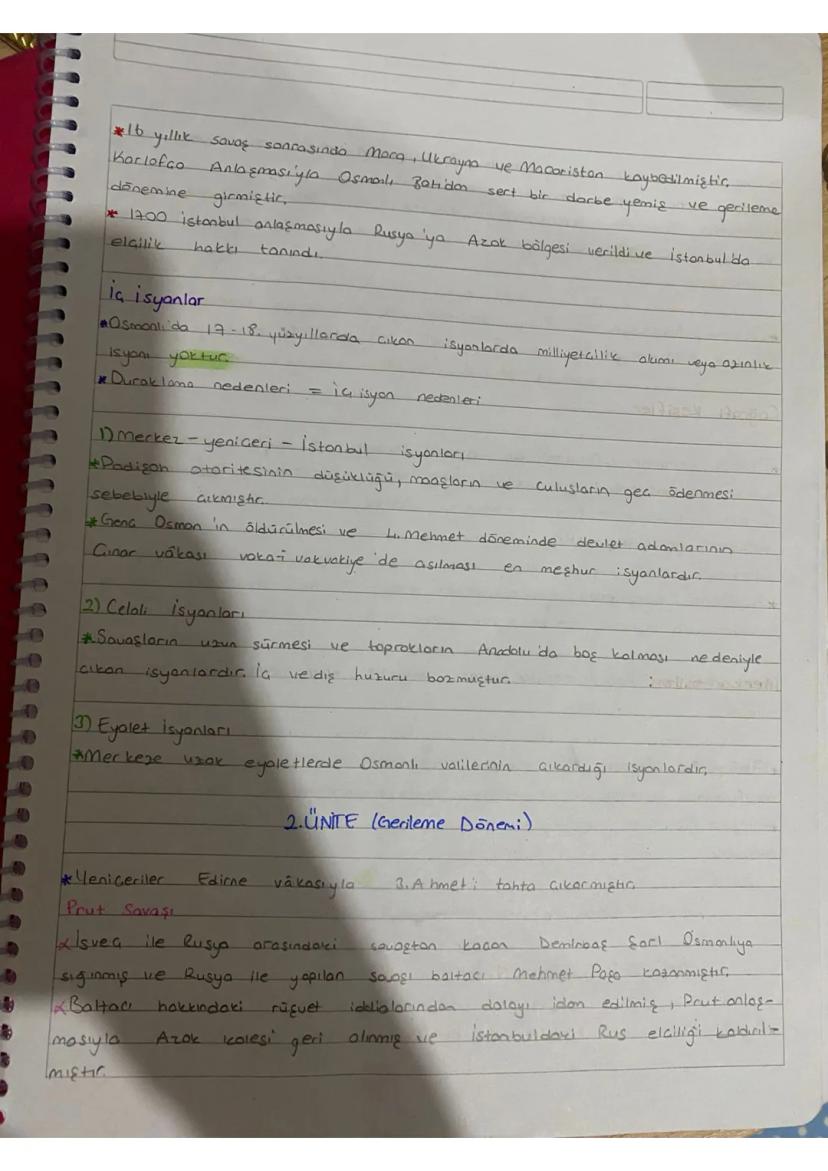 *16 yıllık savaş sonrasında Mora, Ukrayna ve Macaristan kaybedilmiştir.
Karlofça Anlaşmasıyla Osmanlı Batıdan sert bir darbe yemiş ve gerileme
dönemine girmiştir.
* 1700 istanbul anlaşmasıyla Rusya'ya Azak bölgesi verildi ve istanbul'da
elçilik hakkı tanındı.
iç isyanlar
*Osmanlı'da 17-18. yüzyıllarda çıkan isyanlarda milliyetçilik akımı veya azınlık
isyanı yoktur.
*Duraklama nedenleri = iç isyan nedenleri
1) merkez - yeniçeri - istanbul isyanları
*Padişah otoritesinin düşüklüğü, maaşların ve culusların geç ödenmesi
sebebiyle çıkmıştır.
*Genç Osman'ın öldürülmesi ve 4. mehmet döneminde devlet adamlarının
Çınar vâkası vaka-i vakvakiye'de asılması en meşhur isyanlardır.
2) Celali isyanları
*Savaşların uzun sürmesi ve toprakların Anadolu'da boş kalması nedeniyle
çıkan isyanlardır. İç ve dış huzuru bozmuştur.
3) Eyalet isyanları
*Merkeze uzak eyaletlerde Osmanlı valilerinin çıkardığı isyanlardır.
2.ÜNİTE (Gerileme Dönemi)
*Yeniçeriler Edirne vâkasıyla 3.Ahmet'i tahta çıkarmıştır.
Prut Savaşı
*İsveç ile Rusya arasındaki savaştan kaçan Demirbaş Şarl Osmanlıya
sığınmış ve Rusya ile yapılan savaşı baltacı Mehmet Paşa kazanmıştır.
*Baltacı hakkındaki rüşvet iddialarından dolayı idam edilmiş, Prut anlaş-
masıyla Azak kalesi geri alınmış ve istanbuldaki Rus elçiliği kaldırıl-
mıştır.